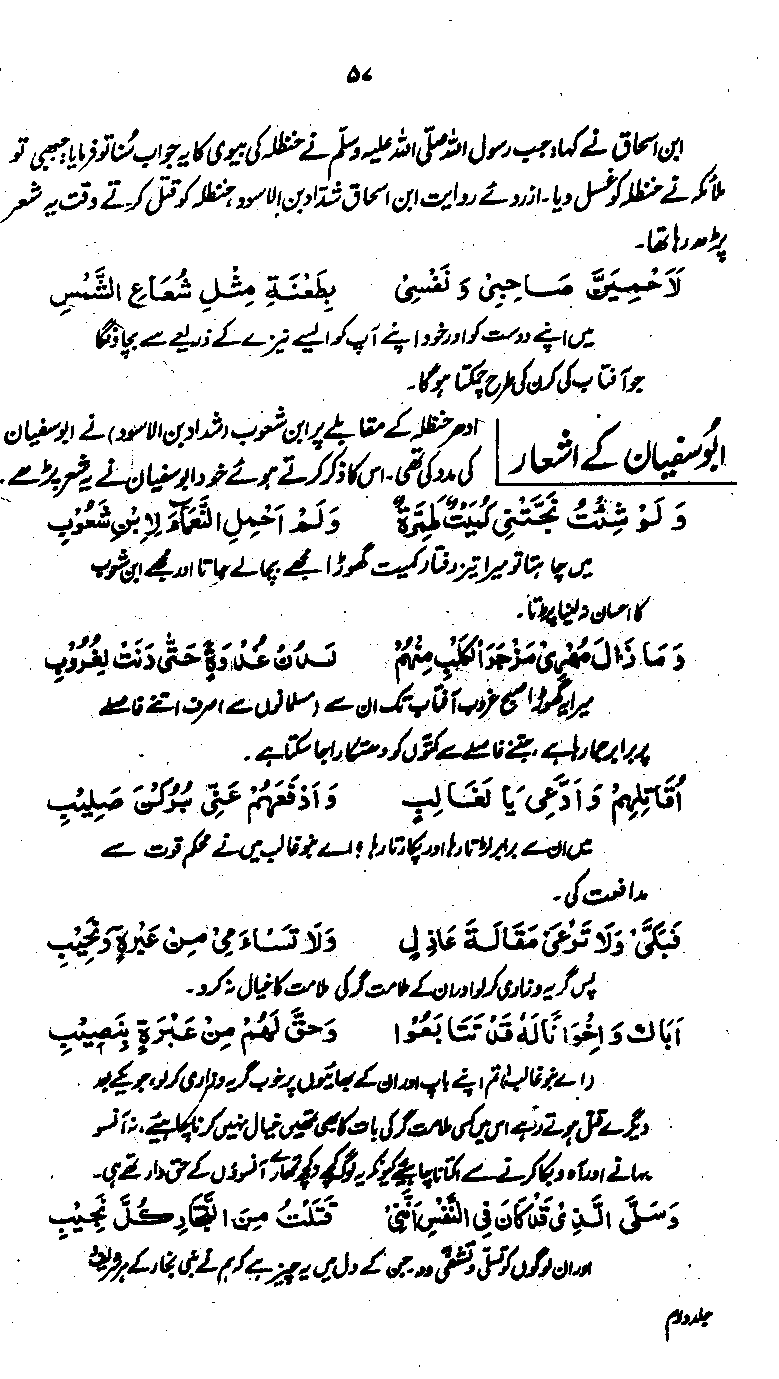 ۵۷
ابن اسحاق نے کہا، جب رسول اللہ صلی اللہ علیہ وسلم نے حنظلہ کی بیوی کا یہ جواب سُنا تو فرمایا: جبھی تو
ملائکہ نے حنظلہ کو غسل دیا۔ ازروئے روایت ابن اسحاق شداد بن الاسود، حنظلہ کو قتل کرتے وقت یہ شعر
پڑھ رہا تھا۔
لَاَحْمِیَنَّ صَاحِبِیْ وَ نَفْسِیْ بِطَعْنَۃٍ مِثْلِ شُعَاعِ الشَّمْسِ
میں اپنے دوست کو اور خود اپنے آپ کو ایسے نیزے کے ذریعے سے بچاؤنگا
جو آفتاب کی کرن کی طرح چمکتا ہوگا۔
ابوسفیان کے اشعار
ادھر حنظلہ کے مقابلے پر ابن شعوب (شداد بن الاسود) نے ابوسفیان
کی مدد کی تھی۔ اس کا ذکر کرتے ہوئے خود ابوسفیان نے یہ شعر پڑھے۔
وَ لَوْ شِئْتُ نَجَّتْنِیْ کُمَیْتٌ طِمِرَّۃٌ وَلَمْ اَحْمِلِ النَّعْمَاءَ لِابْنِ شَعُوْبٖ
میں چاہتا تو میرا تیز رفتار کمیت گھوڑا مجھے بچا لے جاتا اور مجھے ابن شعوب
کا احسان نہ لینا پڑتا۔
وَ مَا زَالَ مُهْرِیْ مَزْجَرَ الْکَلْبِ مِنْهُمْ لَدُنْ غُدْوَۃٍ حَتّٰی دَنَتْ لِغُرُوْبٖ
میرا یہ گھوڑا صبح غروب آفتاب تک ان سے (مسلمانوں سے) صرف اتنے فاصلے
پر برابر جا رہا ہے، جتنے فاصلے سے کتوں کو دھتکارا جا سکتا ہے۔
اُقَاتِلُهُمْ وَ اَدَّعِیْ یَا لَغَالِبٍ وَ اَدْفَعُهُمْ عَنِّیْ بِرُکْنِ صَلِیْبٖ
میں ان سے برابر لڑتا رہا اور پکارتا رہا؛ اے بنو غالب میں نے محکم قوت سے
مدافعت کی۔
فَبَکِّیْ وَلَا تَرْعَیْ مَقَالَۃَ عَاذِلٍ وَلَا تَسْاَمِیْ مِنْ عَبْرَۃٍ وَّ نَحِیْبٖ
پس گریہ و زاری کر لو اور ان کے ملامت گر کی ملامت کا خیال نہ کرو۔
اَبَاكِ وَ اِخْوَانًا لَهٗ قَدْ تَتَابَعُوْا وَحُقَّ لَهُمْ مِنْ عَبْرَۃٍ بِنَصِیْبٖ
(اے بنو غالب) تم اپنے باپ اور ان کے بھائیوں پر خوب گریہ و زاری کر لو، جو یکے بعد
دیگرے قتل ہوتے رہے اس میں کسی ملامت گر کی بات کا بھی تمھیں خیال نہیں کرنا چاہیے، نہ آنسو
بہانے اور آہ و بکا کرنے سے اکتانا چاہئے کیونکہ یہ لوگ کچھ نہ کچھ تمھارے آنسوؤں کے حق دار تھے ہی۔
وَ سَلِّی الَّذِیْ قَدْ کَانَ فِی النَّفْسِ اَنَّنِیْ قَتَلْتُ مِنَ النَّجَّارِ کُلَّ نَجِیْبٖ
اور ان لوگوں کو تسلی و تشفی دو۔ جن کے دل میں یہ چیز ہے کہ ہم نے بنی نجار کے ہر شریف
جلد دوم